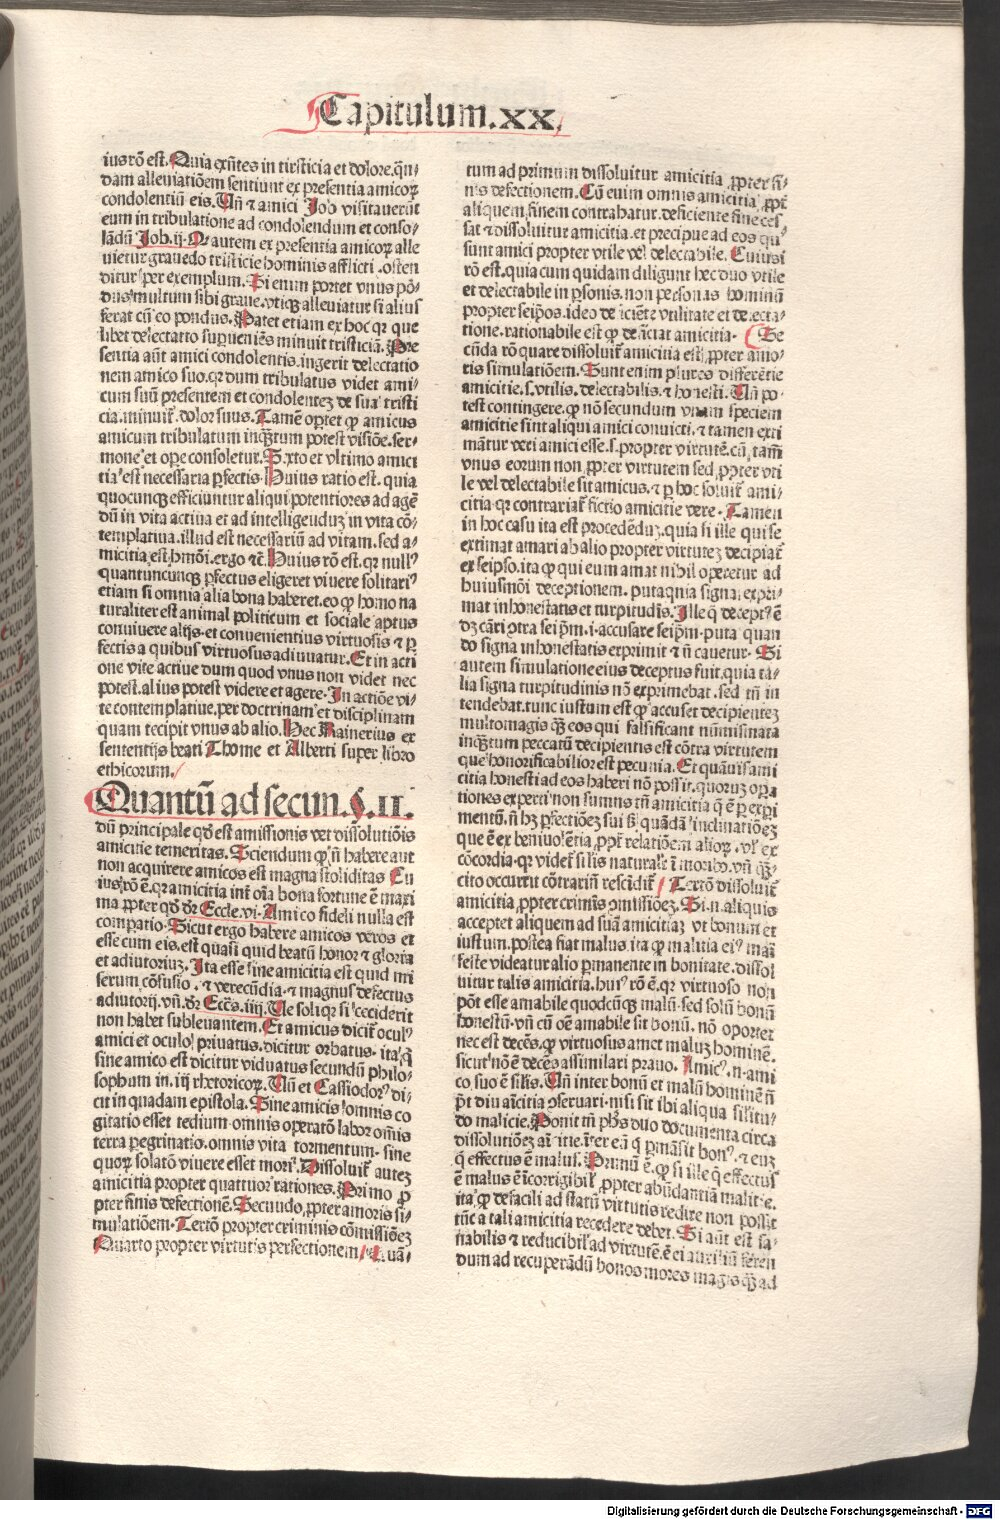 Capitulum.xx.
ius rõ est. Quia exñtes in tirsticia et dolore.qñ-
dam alleuiatiõem sentiunt ex presentia amicoꝝ
condolentiũ eis. Uñ ⁊ amici Job visitauerũt
eum in tribulatione ad condolendum et conso-
lãdũ Job.ij. Qͥ autem ex presentia amicoꝝ alle
uietur grauedo tristicie hominis afflicti .osten
ditur per exemplum. Si enim portet vnus põ-
dus multum sibi graue.vtiqꝫ alleuiatur si alius
ferat cũ eo pondus. Patet etiam ex hoc qꝛ que
libet delectatio suꝑueniẽs minuit tristiciã. Pre
sentia aũt amici condolentis.ingerit delectatio
nem amico suo.qꝛ dum tribulatus videt ami-
cum suũ presentem et condolentez de sua tristi
cia.minuiť dolor suus. Tamẽ oꝑtet ꝙ amicus
amicum tribulatum inqͣꝫtum potest visiõe.ser-
mone et oꝑe consoletur. Sexto et vltimo amici
tia est necessaria ꝑfectis. Huius ratio est. quia
quocunqꝫ efficiuntur aliqui potentiores ad agẽ
dũ in vita actiua et ad intelligenduꝫ in vita cõ-
templatiua.illud est necessariũ ad vitam.sed a-
micitia est hmõi.ergo ⁊c̃. Huius rõ est.qꝛ nullꝰ
quantuncunqꝫ ꝑfectus eligeret viuere solitariꝰ
etiam si omnia alia bona haberet.eo ꝙ homo na
turaliter est animal politicum et sociale aptus
conuiuere alijs.et conuenientius virtuosis ⁊ ꝑ
fectis a quibus virtuosus adiuuatur. Et in acti
one vite actiue dum quod vnus non videt nec
potest.alius potest videre et agere. In actiõe vi-
te contemplatiue.per doctrinam et disciplinam
quam recipit vnus ab alio. Hec Rainerius ex
sententijs beati Thome et Alberti super libro
ethicorum.
Quantũ ad secun.§.II.
dũ principale qd̓ est amissionis vel dissolutiõis
amicitie temeritas. Sciendum ꝙ ñ habere aut
non acquirere amicos est magna stoliditas Cu
ius rõ ẽ.qꝛ amicitia inť oĩa bona fortune ẽ maxi
ma ꝓpter qd̓ dꝛ Eccle.vi. Amico fideli nulla est
comparatio. Sicut ergo habere amicos veros et
esse cum eis.est quasi quid beatũ honor ⁊ gloria
et adiutoriuꝫ. Ita esse sine amicitia est quid mi
serum cõfusio . ⁊ verecũdia ⁊ magnus defectus
adiutorij.vñ.dꝛ Eccs.iiij. Ue soli qꝛ si ceciderit
non habet subleuantem. Et amicus diciť oculꝰ
amici et oculo priuatus.dicitur orbatus. ita q̃
sine amico est dicitur viduatus secundũ philo-
sophum in.iij rhetoricoꝝ. Uñ et Cassiodorꝰ di-
cit in quadam epistola. Sine amicis omnis co
gitatio esset tedium omnis operatõ labor omĩs
terra ꝑegrinatio.omnis vita tormentum. sine
quoꝝ solatõ viuere esset mori. Dissoluiť autez
amicitia propter quattuor rationes. Primo ꝓ
pter finis defectionẽ. Secundo.ꝓpter amoris si-
mulatiõem. Tertõ propter criminis cõmissiõez
Quarto propter virtutis perfectionem Quã-
tum ad primum dissoluitur amicitia ꝓpter fi-
nis defectionem. Cũ enim omnis amicitia ꝓpť
aliquem finem contrahatur.deficiente fine ces
sat ⁊ dissoluitur amicitia.et precipue ad eos qui
sunt amici propter vtile vel delectabile. Cuiusi
rõ est.quia cum quidam diligunt hec duo vtile
et delectabile in ꝑsonis.non personas hominũ
propter seip̃os.ideo deficiẽte vtilitate et delecta-
tione.rationabile est ꝙ deficiat amicitia. Se
cũda rõ quare dissoluiť amicitia est ꝓpter amo-
ris simulatiõem. Sunt enim plures differẽtie
amicitie.s.vtilis.delectabilis.⁊ honesti. Uñ po-
test contingere.ꝙ nõ secundum vnam speciem
amicitie sint aliqui amici conuicti.⁊ tamen exti
mãtur veri amici esse.s.propter virtutẽ.cũ tamẽ
vnus eorum non ꝓpter virtutem sed ꝓpter vti
le vel delectabile sit amicus.⁊ ꝑ hoc soluiť ami-
citia.qꝛ contrariať fictio amicitie vere. Tamen
in hoc casu ita est procedẽduꝫ.quia si ille qui se
extimat amari ab alio propter virtuteꝫ decipiať
ex seipso.ita ꝙ qui eum amat nihil operetur ad
huiusmõi deceptionem. puta qꝛ nulla signa expri-
mat inhonestatis et turpitudĩs. Ille q̃ deceptꝰ ẽ
dꝫ cãri ↄtra seip̃m.i.accusare seip̃m.puta quan
do signa inhonestatis exprimit ⁊ ñ cauetur. Si
autem simulatione eius deceptus fuit.quia ta-
lia signa turpitudinis nõ exprimebat.sed tñ in
tendebat.tunc iustum est ꝙ accuset decipientez
multomagis qͣꝫ eos qui falsificant numismata
inqͣꝫtum peccatũ decipientis est cõtra virtutem
que honorificabilior est pecunia. Et quãuis ami
citia honesti ad eos haberi nõ possit.quoruꝫ oꝑa
tiones experti non sumus tñ amicitia q̃ ẽ ꝑ exꝑi
mentũ.ñ hꝫ ꝑfectiõez sui sꝫ quãdã inclinatiõez
que ẽ ex beniuolẽtia ꝓpť relatiõem alioꝝ .vl̓ ex
cõcordia.qꝛ videť silis naturale ĩ morib̾.vñ qͣꝫ-
cito occurrit cõtrariũ rescĩdiť Tertõ dissoluiť
amicitia ꝓpter crimĩs ↄmissiõeꝫ. Si.n.aliquis
acceptet aliquem ad suã amicitiaꝫ vt bonum et
iustum.postea fiat malus.ita ꝙ malitia eiꝰ mai
feste videatur alio ꝑmanente in bonitate.dissol
uitur talis amicitia.huiꝰ rõ ẽ.qꝛ virtuoso non
põt esse amabile quodcũqꝫ malũ.sed solũ bonũ
honestũ.vñ cũ oẽ amabile sit bonũ. nõ oporter
nec est decẽs.ꝙ virtuosus amet maluꝫ hominẽ.
sicut nõ ẽ decẽs assimilari prauo. Amicꝰ.n.ami
co suo ẽ silis. Uñ inter bonũ et malũ hominẽ ñ
ꝑt diu aĩcitia ↄseruari.nisi sit ibi aliqua silitu-
do malicie. Ponit tñ phꝰs duo documenta circa
dissolutiõez amicitie.inter eũ q̃ ꝑmãsit bonꝰ.⁊ euꝫ
q̃ effectus ẽ malus. Primũ ẽ.ꝙ si ille q̃ effectus
ẽ malus ẽ ĩcorrigibil̓ ꝓpter abũdantiã malitie.
ita ꝙ defacili ad statũ virtutis redire non possit
tũc a tali amicitia recedere debet. Si aũt est sa-
nabilis ⁊ reducibil̓ ad virtutẽ.ẽ ei auxiliũ feren
dum ad recuperãdũ bonos mores magis qͣꝫ ad
Digitalisierung gefördert durch die Deutsche Forschungsgemeinschaft - DFG